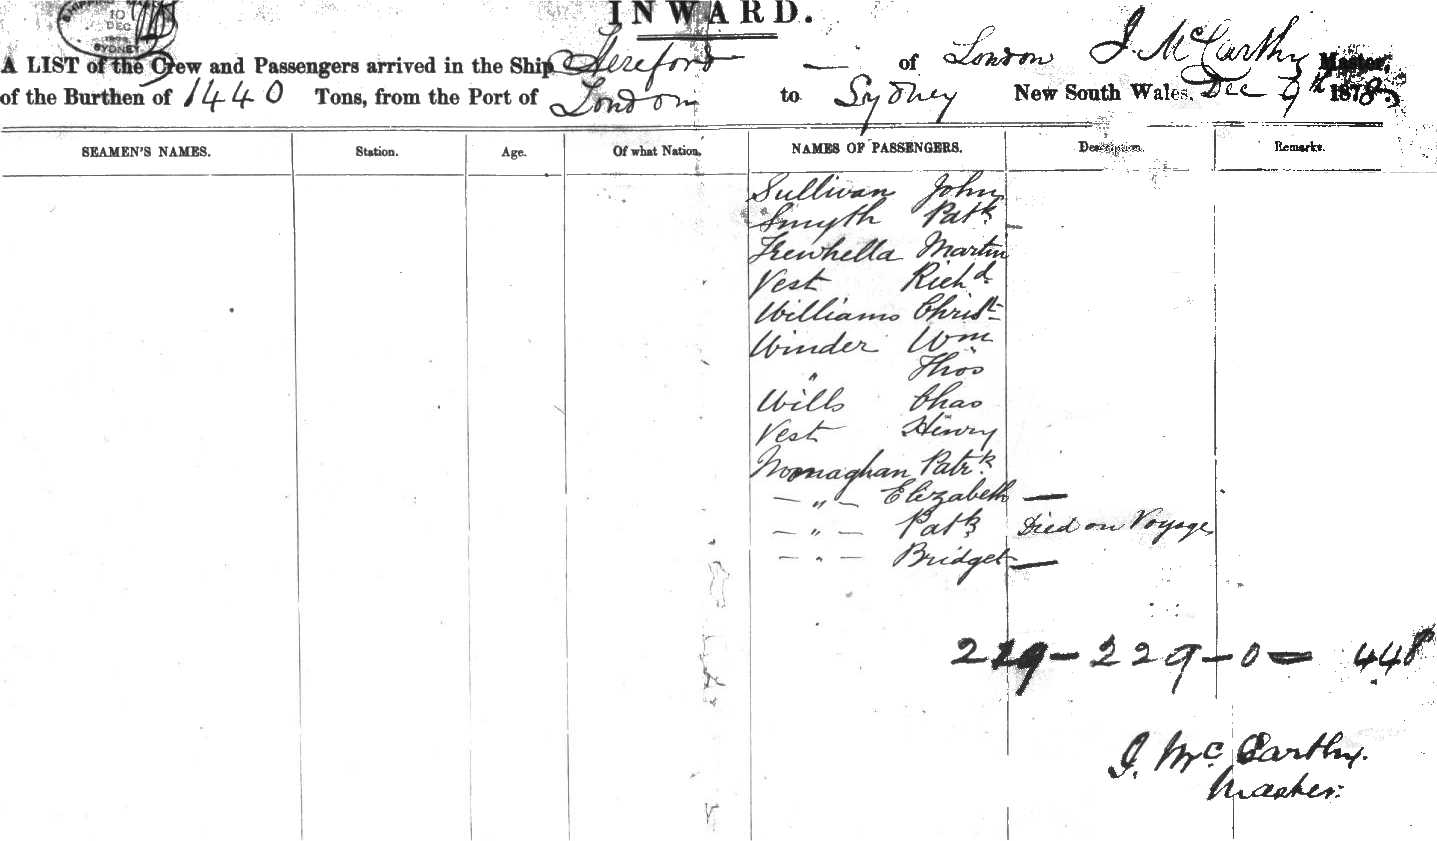 10
DEC
SYDNEY
INWARD.
A LIST of the Crew and Passengers arrived in the Ship Hereford — of London J. McCarthy Master,
of the Burthen of 1440 Tons, from the Port of London to Sydney New South Wales, Dec 9th 1878
SEAMEN'S NAMES. Station. Age. Of what Nation. NAMES OF PASSENGERS. Description. Remarks.
Sullivan John
Smyth Patk
Trewhella Martin
Vest Richd
Williams Christ
Winder Wm
" Thos
Wills Chas
Vest Henry
Monaghan Patrk
— " — Elizabeth —
— " — Patk Died on Voyage
— " — Bridget —
229 – 0 = 448
J. McCarthy.
Master.